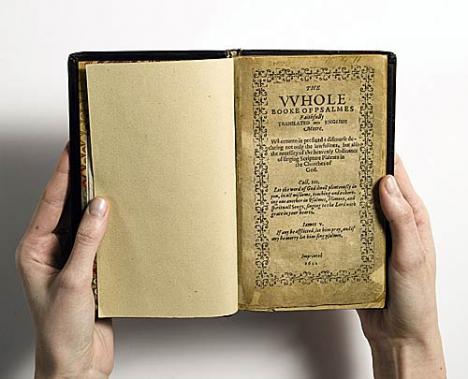 THE
VVHOLE
BOOKE OF PSALMES
Faithfully
TRANSLATED into ENGLISH
Metre.
Whereunto is prefixed a discourse de-
claring not only the lawfullnes, but also
the necessity of the heavenly Ordinance
of singing Scripture Psalmes in
the Churches of
God.
Coll. III.
Let the word of God dwell plenteously in
you, in all wisdome, teaching and exhort-
ing one another in Psalmes, Himnes, and
spirituall Songs, singing to the Lord with
grace in your hearts.
James v.
If any be afflicted, let him pray, and if
any be merry let him sing psalmes.
Imprinted